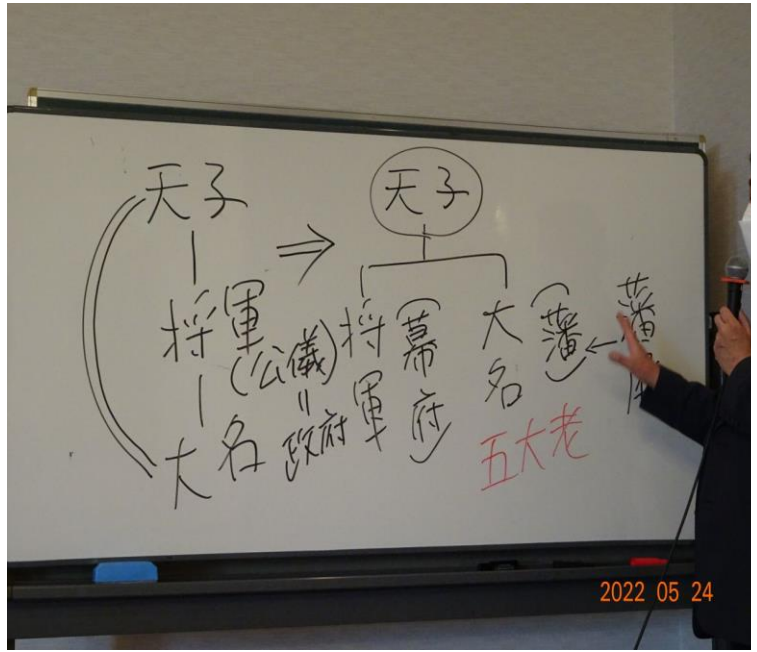 天子
将軍
(公儀)
=
政府
大名
⇒
天子
将軍
(幕府)
大名
(藩)
←
藩
五大老
2022 05 24